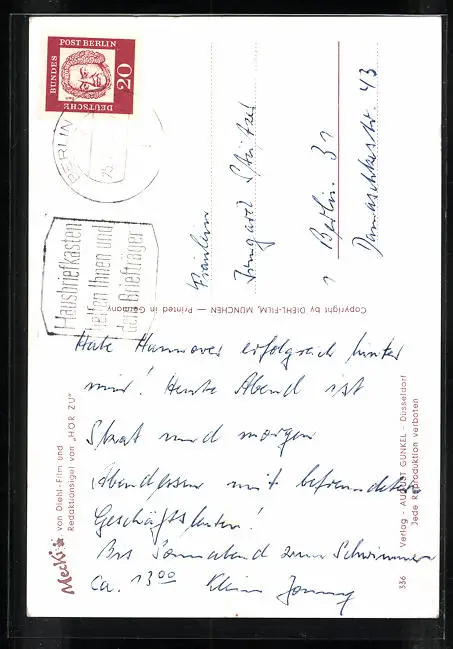 DEUTSCHE
BUNDES
POST BERLIN
20
BERLIN
Hausbriefkasten
helfen Ihnen und
dem Briefträger
Fräulein
Irmgard
1 Berlin 31
Damaschkestr. 43
Copyright by DIEHL-FILM, MÜNCHEN — Printed in Germany
Habe Hannover erfolgreich hinter
mir! Heute Abend ist
Skat und morgen
Abendessen mit befreundeten
Geschäftsleuten!
Bis Sonnabend zum Schwimmen
ca. 13⁰⁰ Klein
Mecki
von Diehl-Film und
Redaktionsigel von "HÖR ZU"
336 Verlag - AUGUST GUNKEL - Düsseldorf
Jede Reproduktion verboten